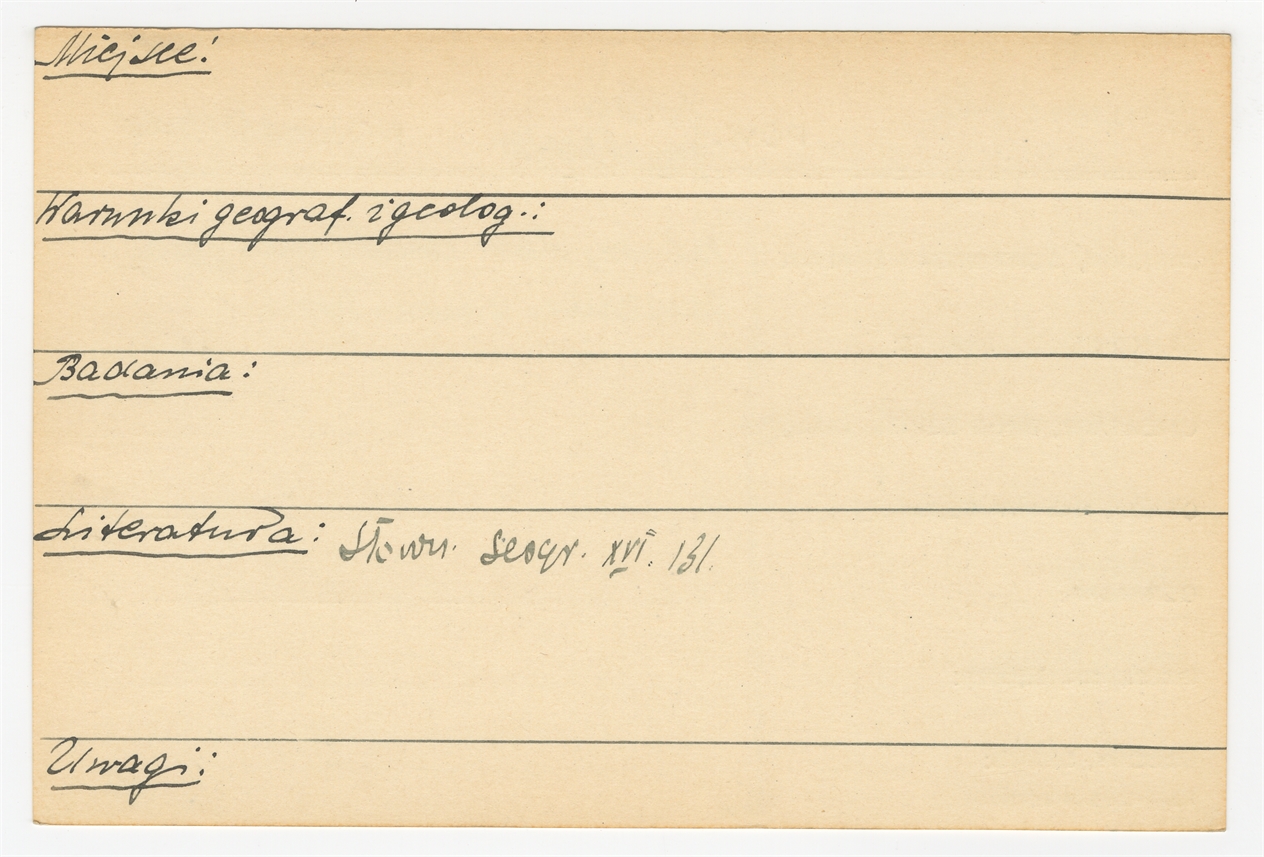 Miejsce:
Warunki geograf. i geolog.:
Badania:
Literatura: Słown. Geogr. XVI. 131.
Uwagi: